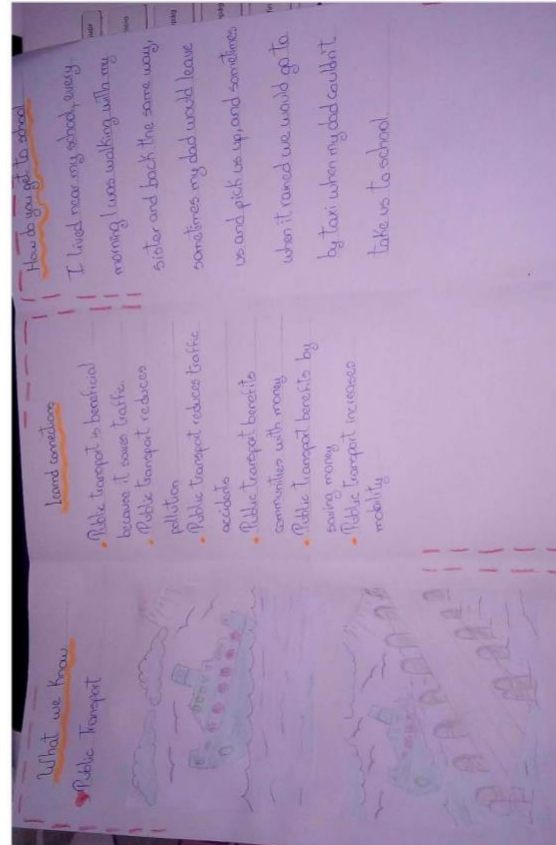 What we know
Public Transport
Learnd connections
• Public transport is beneficial
because it saves traffic.
• Public transport reduces
pollution
• Public transport reduces traffic
accidents
• Public transport benefits
communities with money
• Public transport benefits by
saving money
• Public transport increases
mobility
How do you get to school
I lived near my school, every
morning I was walking with my
sister and back the same way,
sometimes my dad would leave
us and pick us up, and sometimes
when it rained we would go to
by taxi when my dad couldn't
take us to school